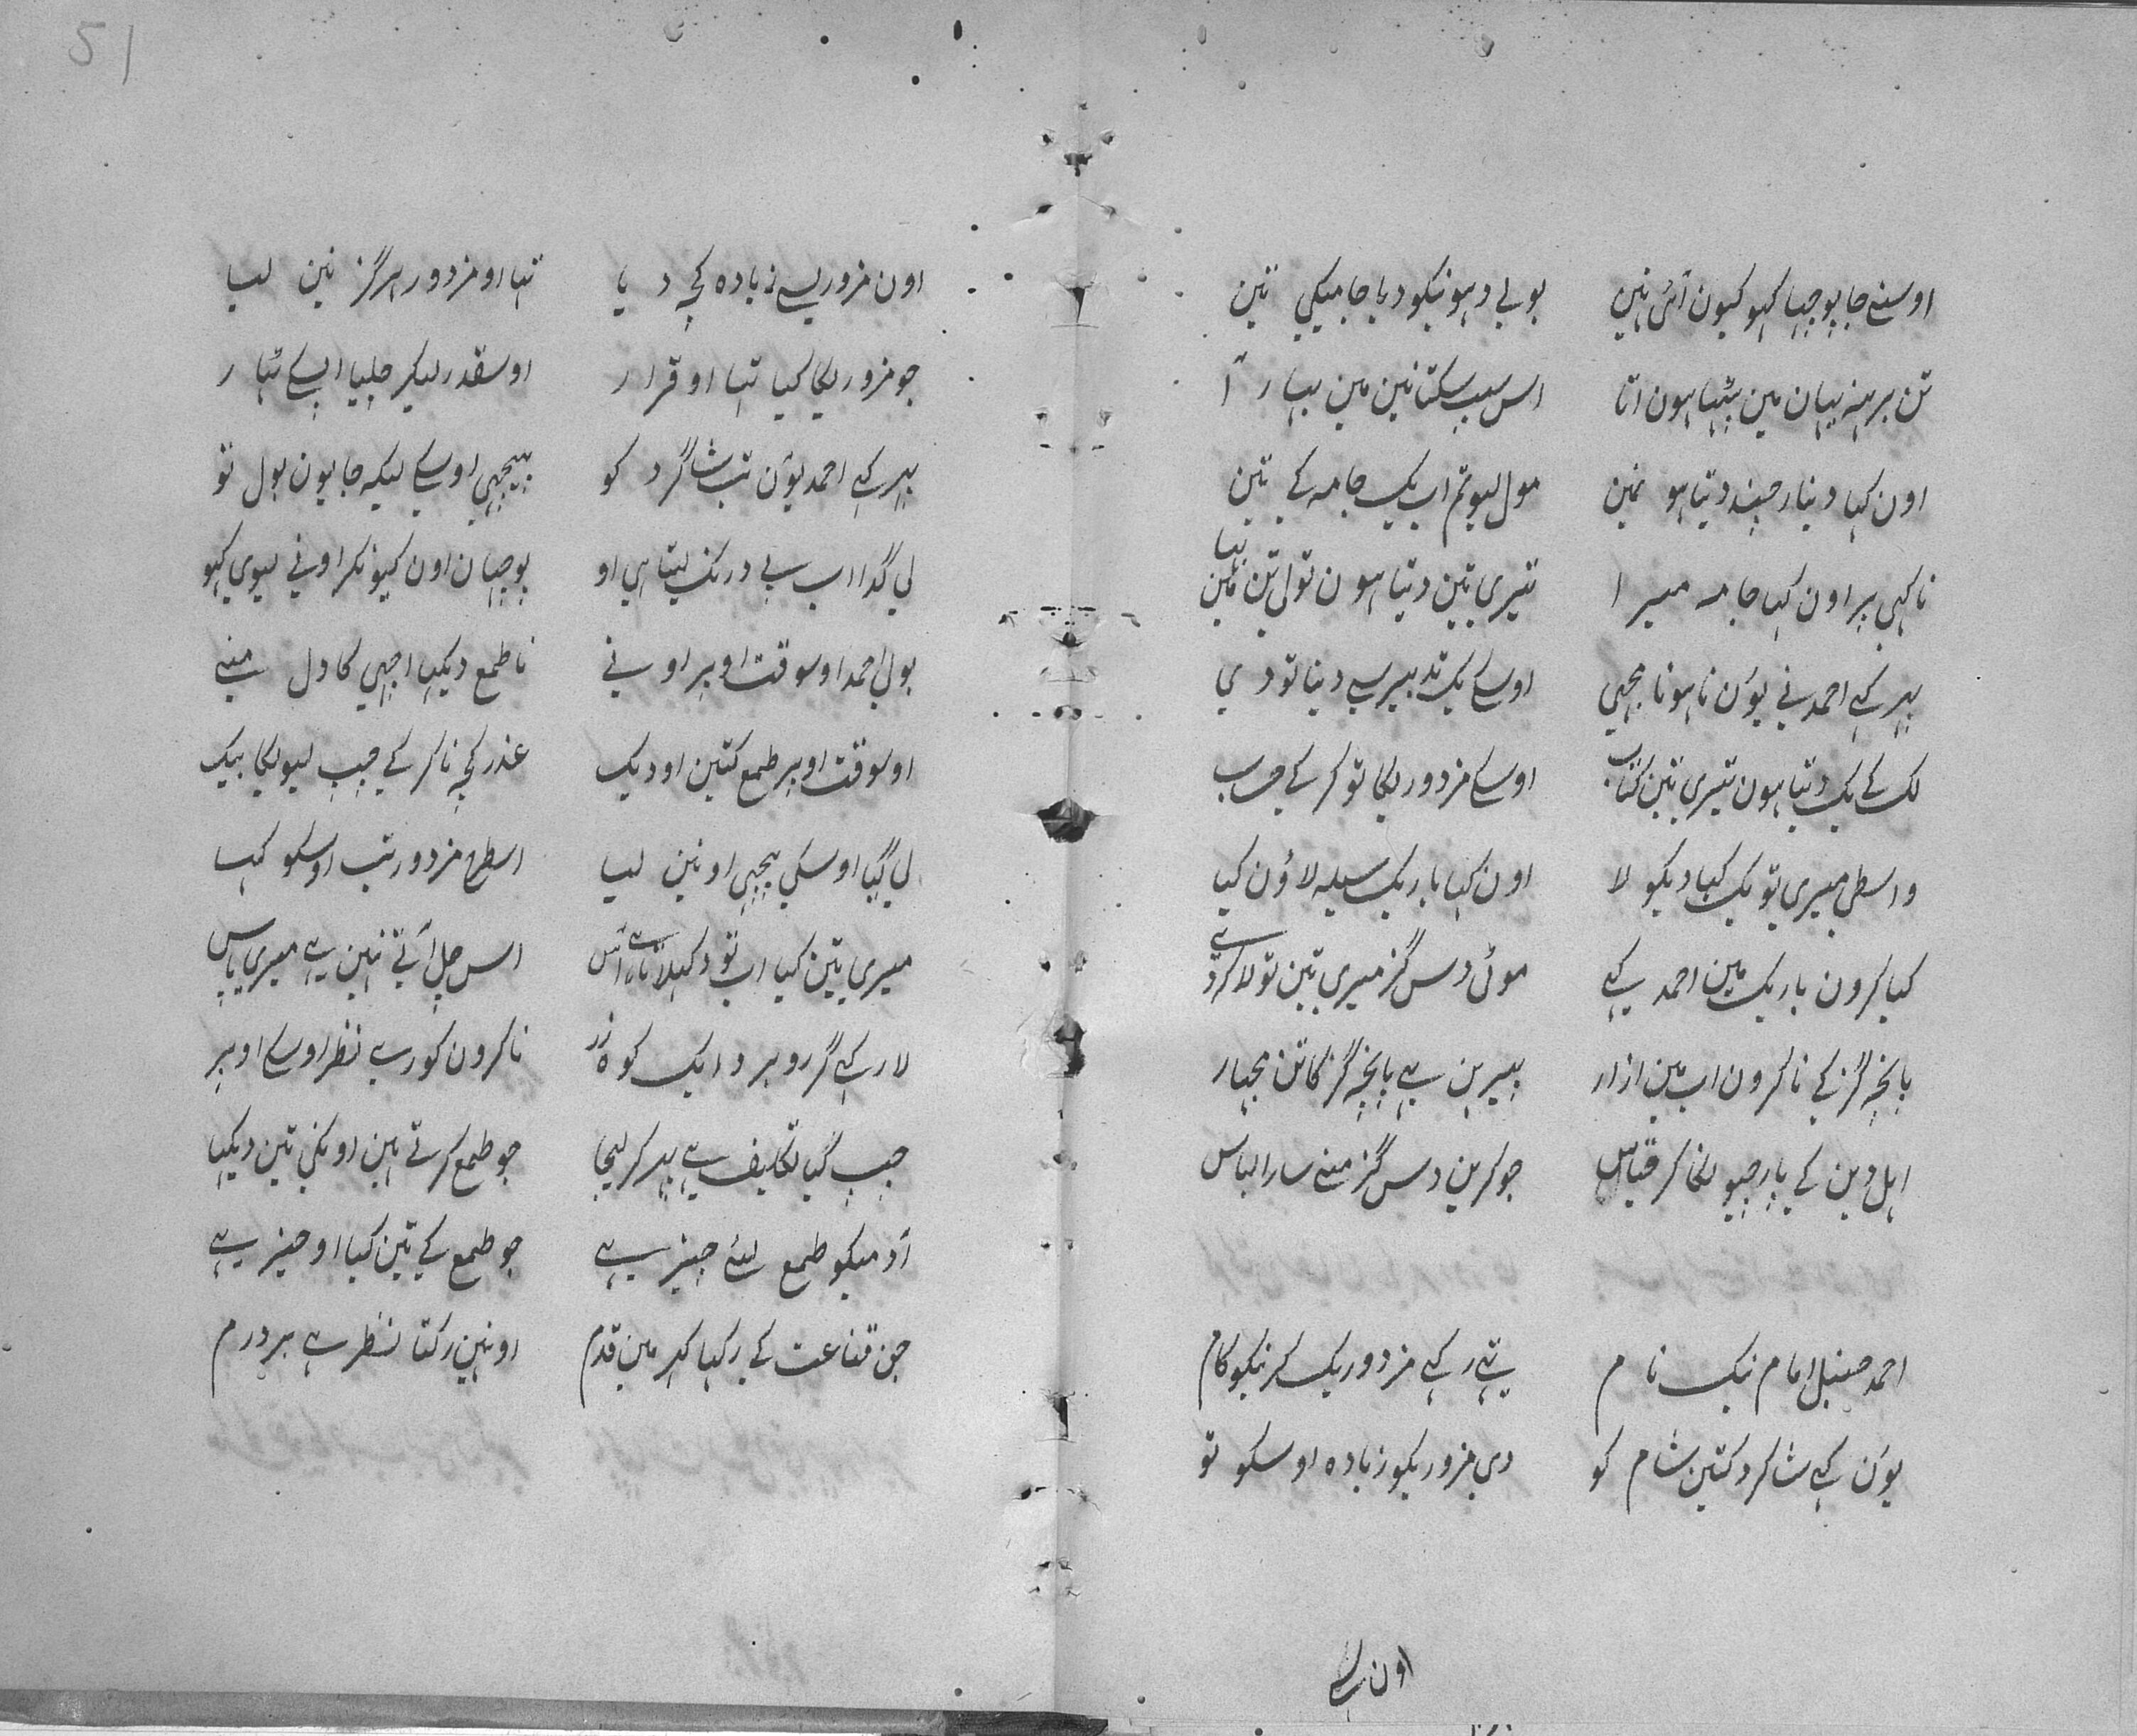 اوسنے جا پوچہا کہو کیون آئی نہین بولے دہونیکو دیا جامیکی تین
تن برہنہ یہان مین بیٹہا ہون اتا اس سبب سکتا نین مین بہار آ
اون کہا دینار چند دیتا ہو نمین مول لیو تم اب یک جامہ کے تین
نا کہی پر اون کہا جامہ میرا تیری تین دیتا ہون تو لی تن
پہر کہے احمد نے یوَن نا ہونا مجہی اوسکے یک تدبیر سے دینا تو دی
لک کے یک دیتا ہون تیری تین کتاب اوسکے مزدوریکا تو کر کے حساب
واسطی میری تو یک کپڑا دیکو لا اون کہا باریک سیلہ لاوٗن کیا
کیا کرون باریک مین احمد کہے موئی دس گز میری تین تو لا کر دے
پانچہ گز کے نا کرون اب مین ازار پیرہن ہے پانچہ گز کا تن مجہار
اہل دین کے پارچیونکا کر قیاس جو کرین دس گز منے سارا لباس
احمد حنبل امام نیک نام تہے رکہے مزدور یک کرنیکو کام
یوَن کہے شاکرد کتین شام کو دی مزوریکو زیادہ اوسکو تو
اون سے
51
اون مزوریسے زیادہ کچہ دیا تہا او مزدور ہرگز نین لیا
جو مزوریکا کیا تہا او قرار اوسقدر لیکر چلیا اپسکے ٹہار
پہر کہے احمد یوَن تب شاگرد کو پیچہی اوسکے لیکہ جا یون بول تو
لی گدا اب بے درنک لیتا ہی او پوچہیان اون کیونکر اونے لیوی کہو
بول احمد اوسوقت اوپر اونے نا طمع دیکہیا اچہی کا دل منے
اوسوقت اوپر طمع کتین او دیک عذر کچہ نا کر کے جب لیویگا بیک
لی گیا اوسکی پیچہی او نین لیا اسطرح مزدور تب اوسکو کہا
میری تین کیا اب تو دکہلاتا ہے آس اس چل آتے نین ہے میری پاس
لا رکہے گر روبرو ایک کوہ زر نا کرون کور سے نظر اوسکے اوپر
جب گیا تکلیف سے پہر کر لیجا جو طمع کرتے ہین اونکی تین دیکہا
آدمیکو طمع لئے چیز ہے جو طمع کے تین کیا او حیز ہے
جن قناعت کے رکہا کہر مین قدم او نہین رکتا نظر ہے بر درم